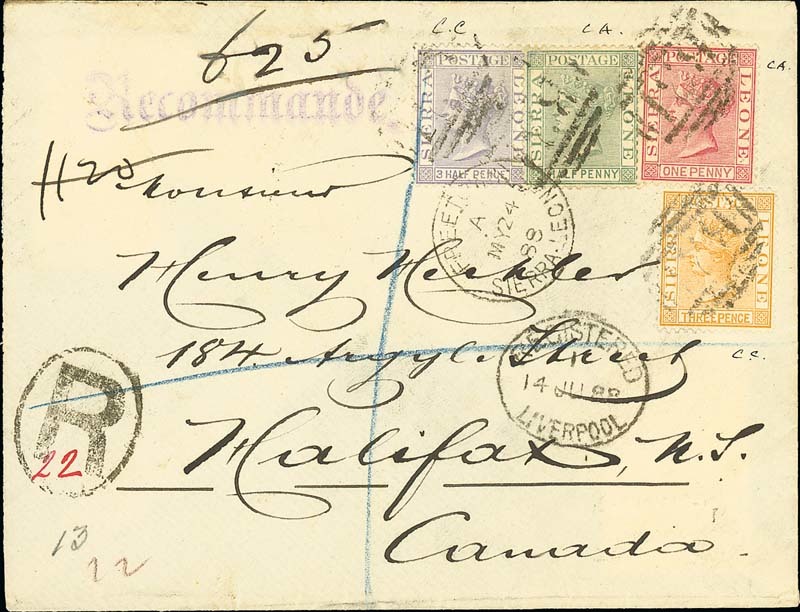 C.C CA.
625
CA.
Recommandé.
SIERRA POSTAGE LEONE 3 HALF PENCE
SIERRA POSTAGE LEONE HALF PENNY
SIERRA POSTAGE LEONE ONE PENNY
H20 Monsieur
FREETOWN SIERRA-LEONE
A
MY 24
88
SIERRA LEONE THREE PENCE
Henry Hechler
184 Argyle Street
C.C.
REGISTERED
14 JU 88
LIVERPOOL
R
22
Halifax, N.S.
13
22
Canada.